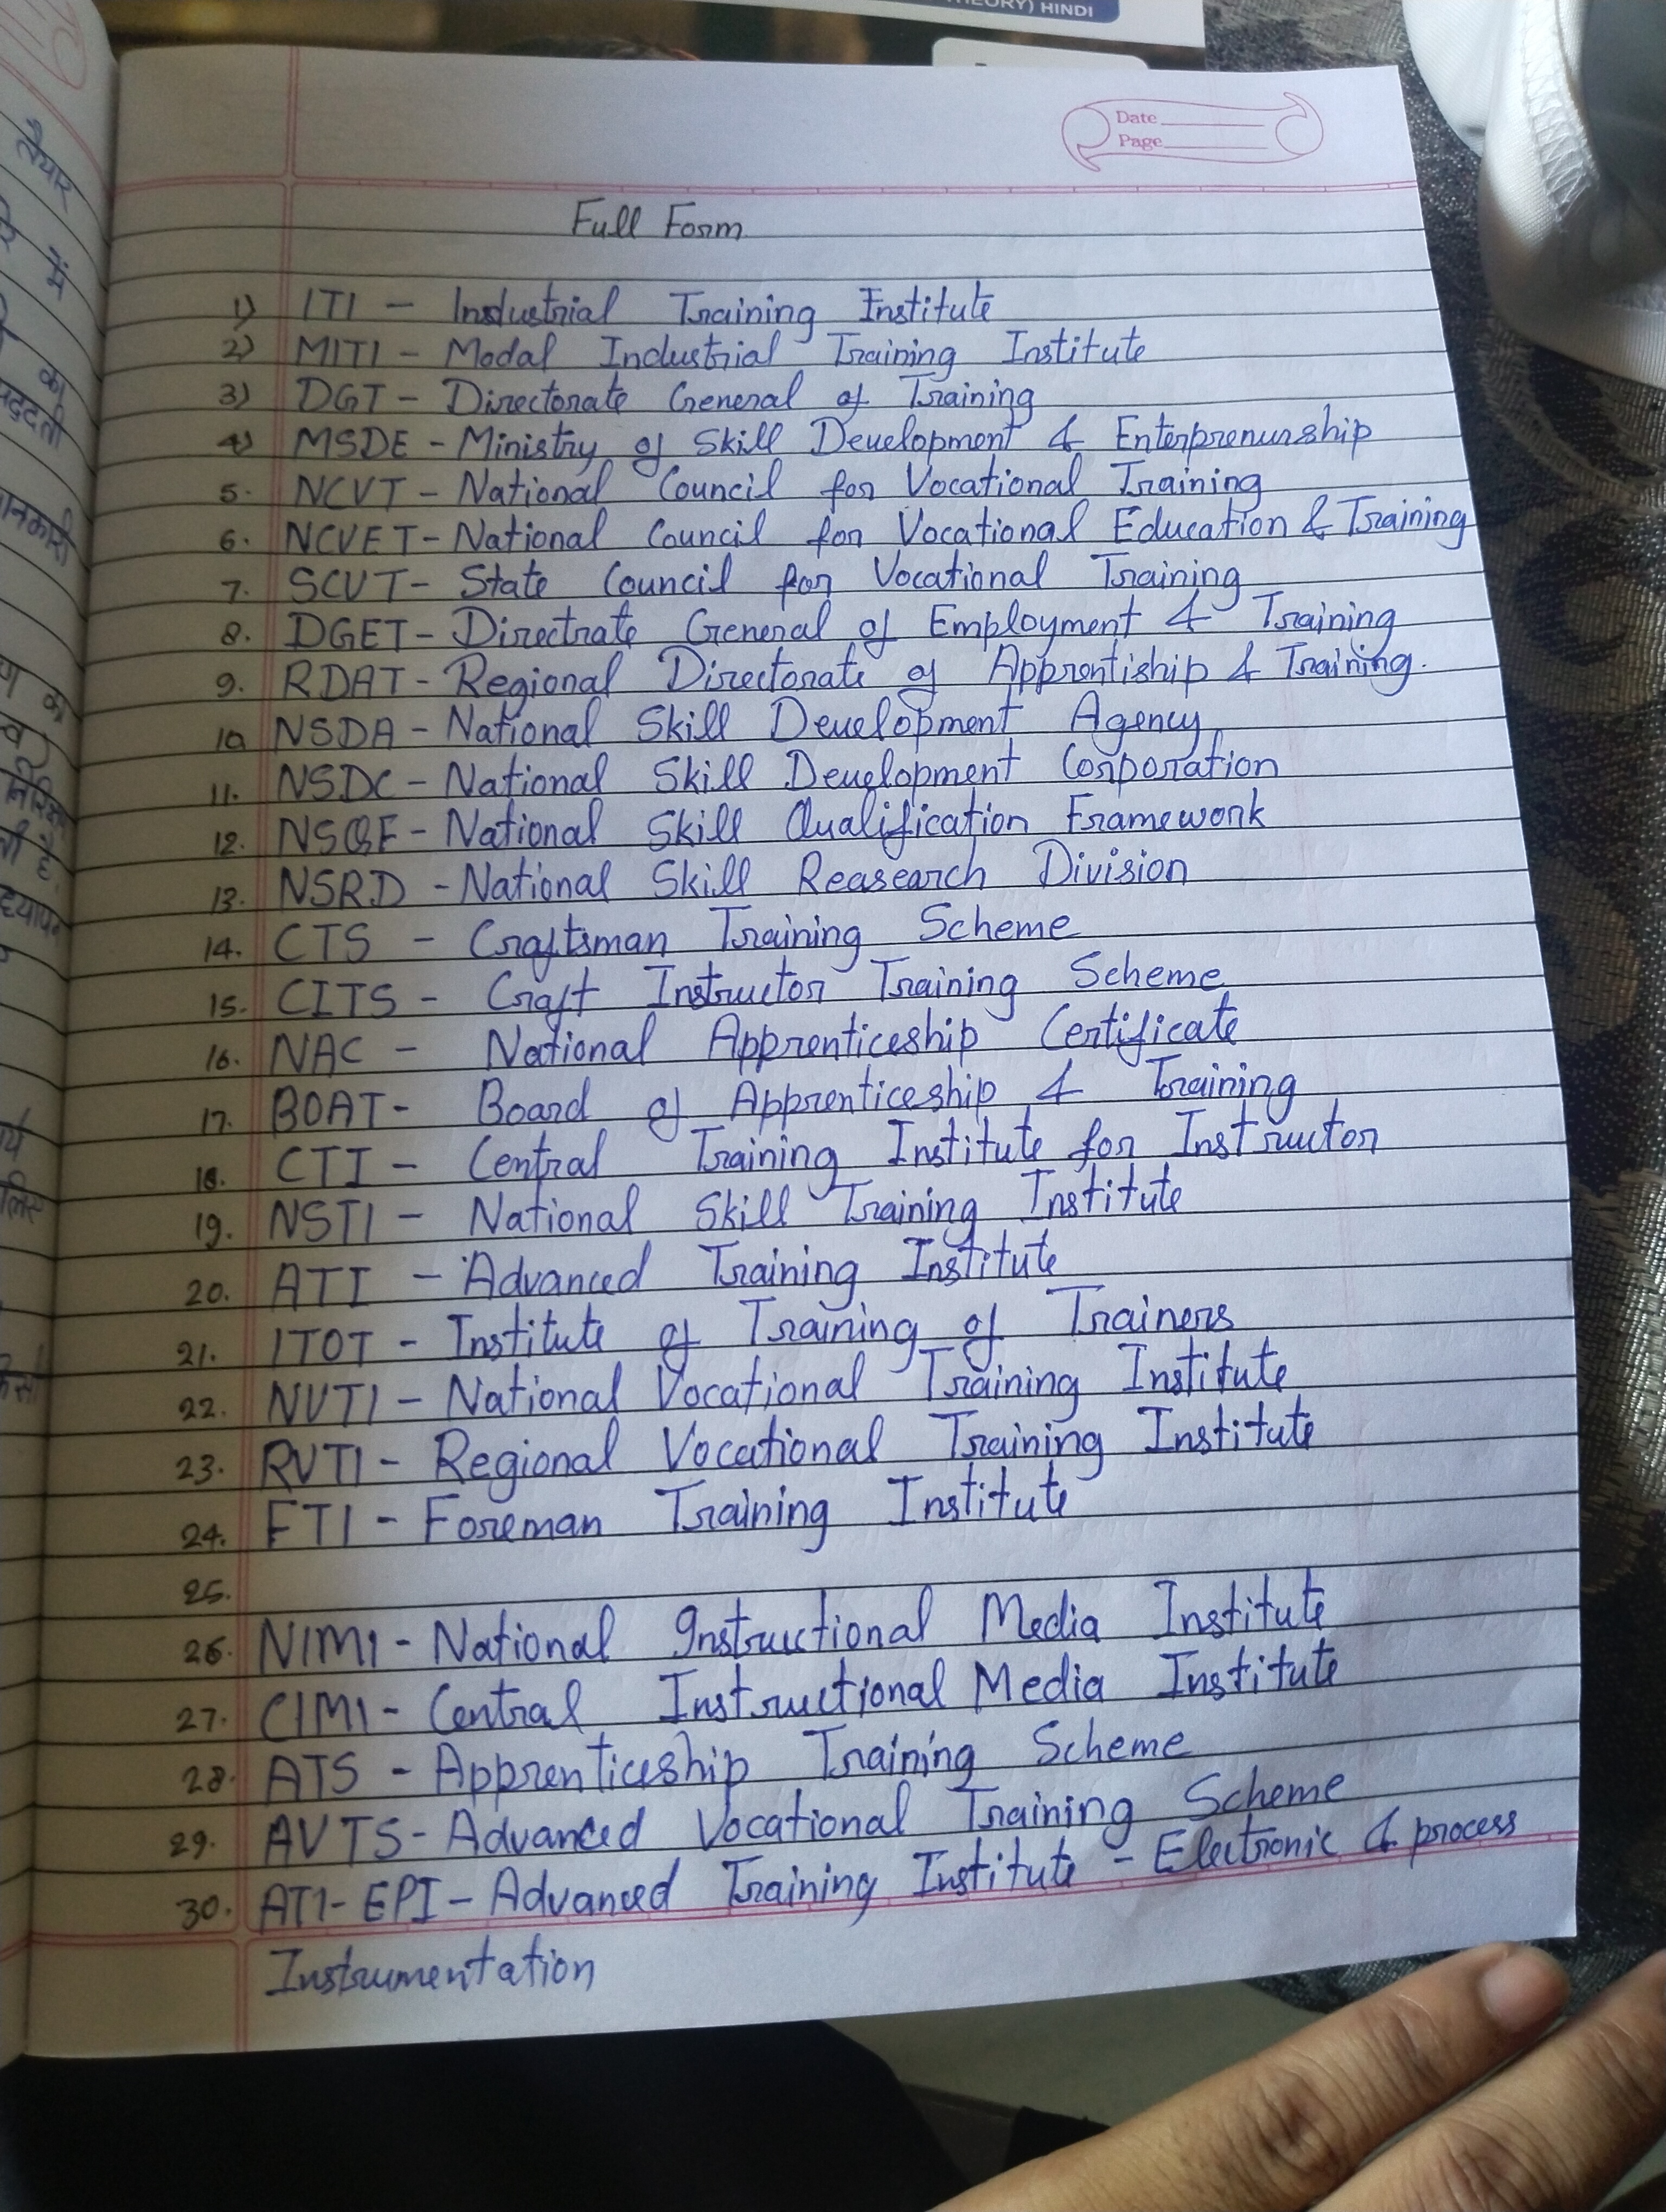 HINDI
Date
Page
Full Form
1) ITI - Industrial Training Institute
2) MITI - Modal Industrial Training Institute
3) DGT - Directorate General of Training
4) MSDE - Ministry of Skill Development & Enterprenurship
5. NCVT - National Council for Vocational Training
6. NCVET - National Council for Vocational Education & Training
7. SCVT - State Council for Vocational Training
8. DGET - Directrate General of Employment & Training
9. RDAT - Regional Directorate of Apprentiship & Training.
10 NSDA - National Skill Development Agency
11. NSDC - National Skill Development Corporation
12. NSQF - National Skill Qualification Framework
13. NSRD - National Skill Reasearch Division
14. CTS - Craftsman Training Scheme
15. CITS - Craft Instructor Training Scheme
16. NAC - National Apprenticeship Certificate
17. BOAT - Board of Apprenticeship & Training
18. CTI - Central Training Institute for Instructor
19. NSTI - National Skill Training Institute
20. ATI - Advanced Training Institute
21. ITOT - Institute of Training of Trainers
22. NVTI - National Vocational Training Institute
23. RVTI - Regional Vocational Training Institute
24. FTI - Foreman Training Institute
25.
26. NIMI - National Instructional Media Institute
27. CIMI - Central Instructional Media Institute
28. ATS - Apprenticeship Training Scheme
29. AVTS - Advanced Vocational Training Scheme
30. ATI-EPI - Advanced Training Institute - Electronic & process
Instrumentation